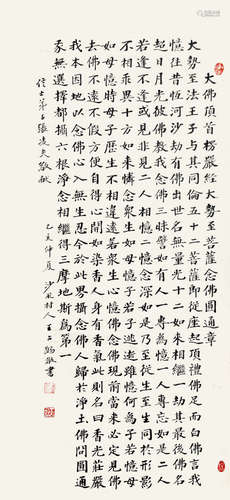 大佛頂首楞嚴經大勢至菩薩念佛圓通章
大勢至法王子與其同倫五十二菩薩即從座起頂禮佛足而白佛言我
憶往昔恆河沙劫有佛出世名無量光十二如來相繼一劫其最後佛名
超日月光彼佛教我念佛三昧譬如有人一專為憶一人專忘如是二人
若逢不逢或見非見二人相憶二憶念深如是乃至從生至生同於形影
不相乖異十方如來憐念眾生如母憶子若子逃逝雖憶何為子若憶母
如母憶時母子歷生不相違遠若眾生心憶佛念佛現前當來必定見佛
去佛不遠不假方便自得心開如染香人身有香氣此則名曰香光莊嚴
我本因地以念佛心入無生忍今於此界攝念佛人歸於淨土佛問圓通
我無選擇都攝六根淨念相繼得三摩地斯為第一
乙亥仲夏 村人王 敬書
信士弟子張凌夫敬獻